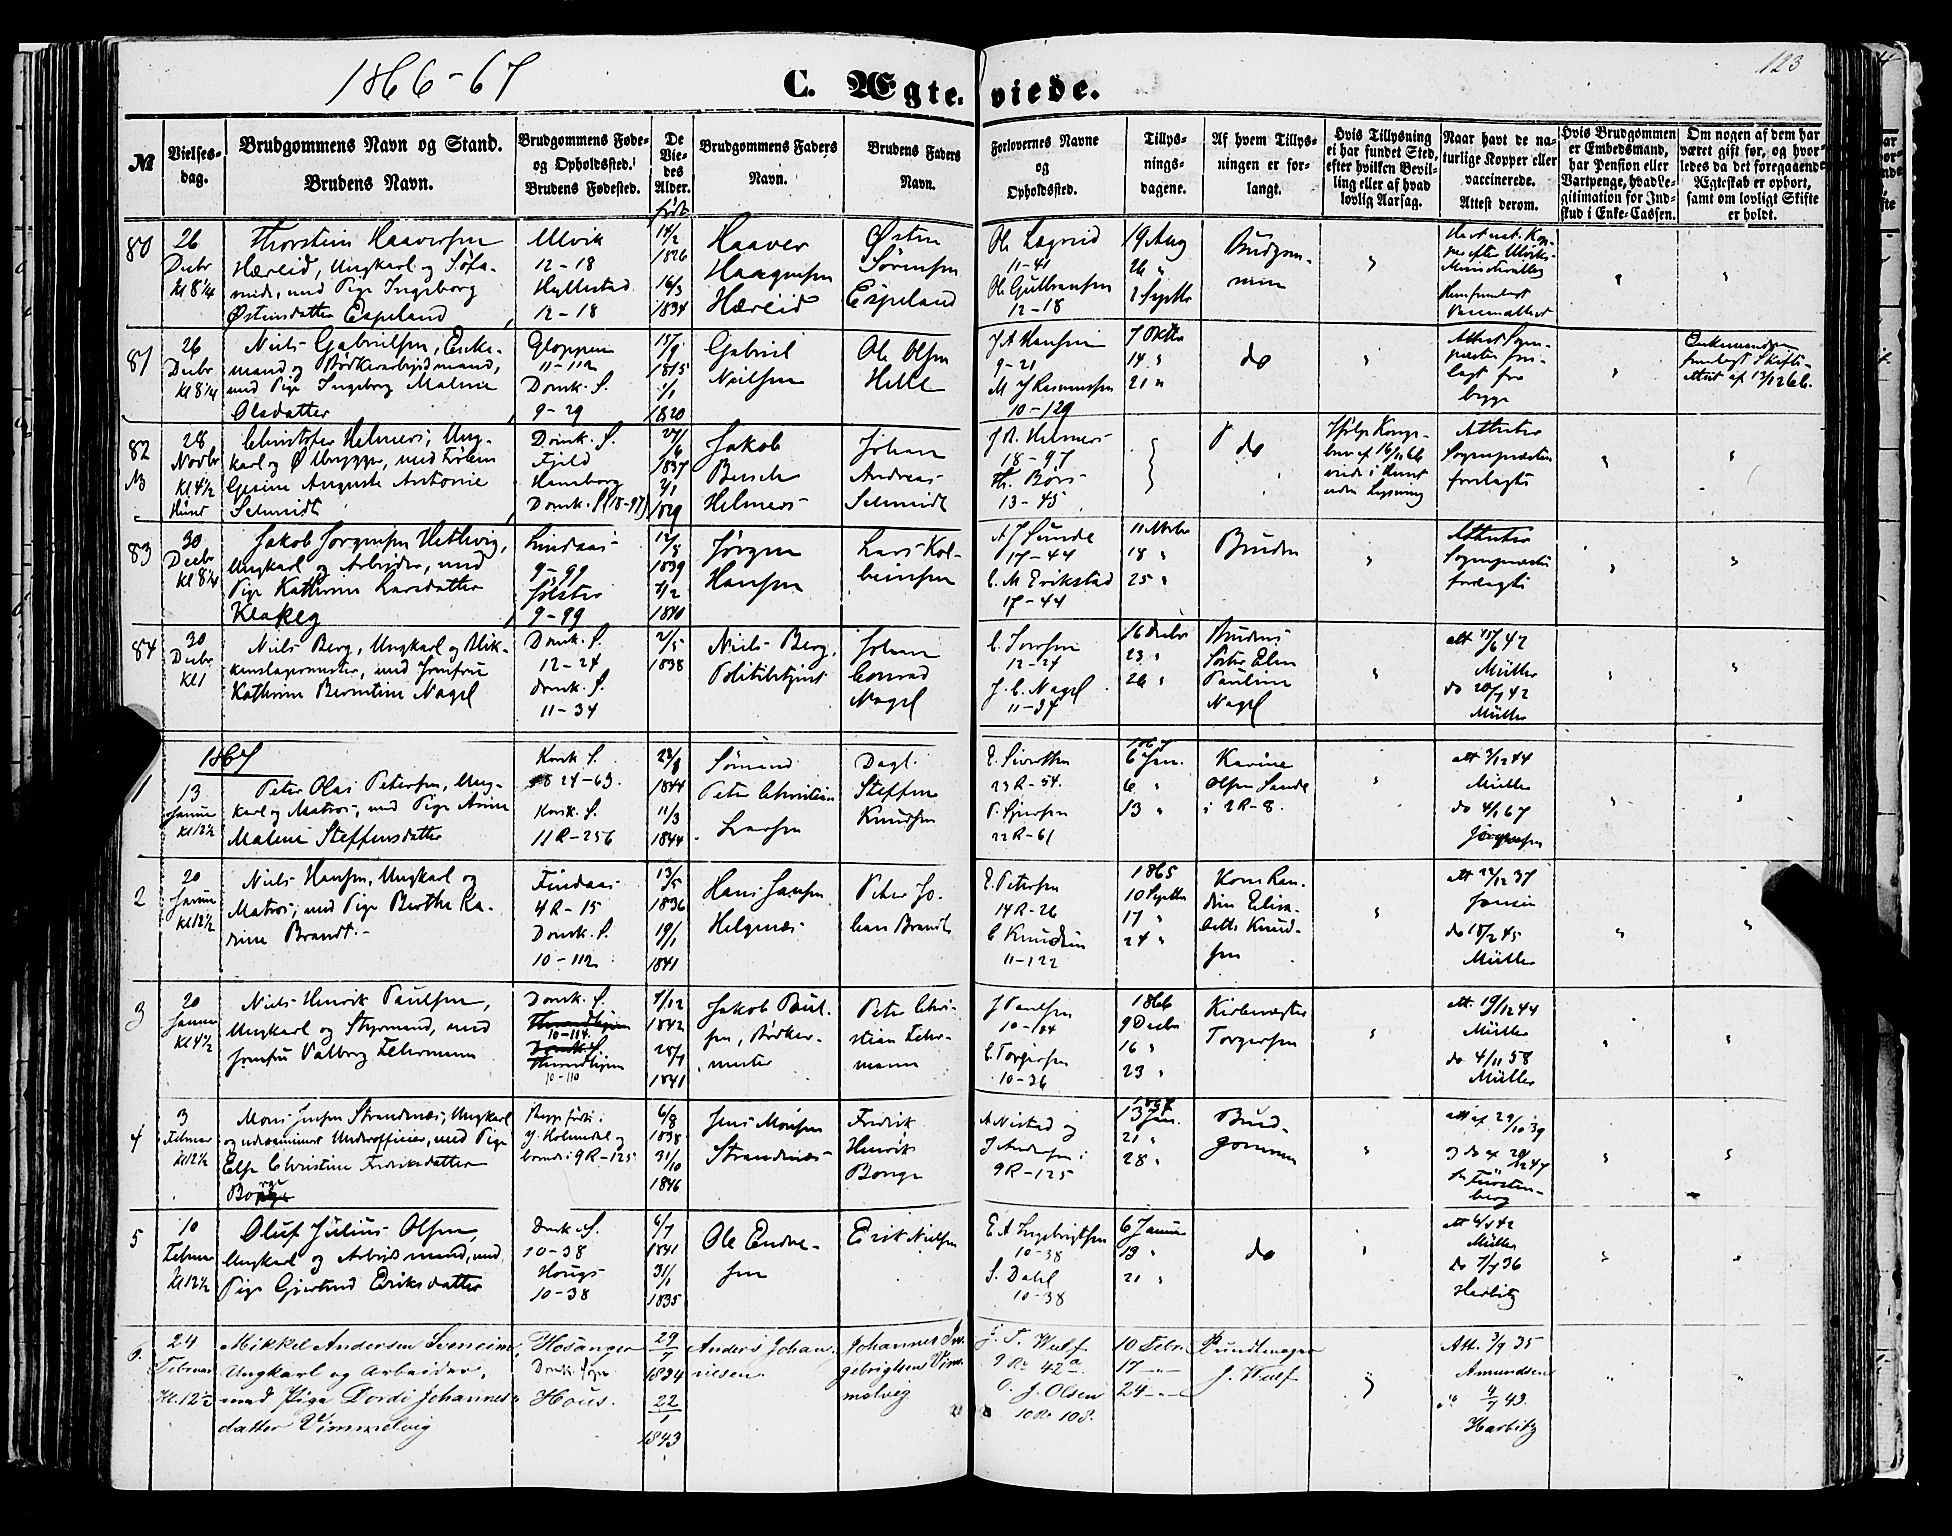 1866-67
C. Ægteviede.
123
№
Vielsesdag.
Brudgommens Navn og Stand.
Brudens Navn.
Brudgommens Føde-
og Opholdssted.
Brudens Fødested.
De
Viedes
Alder.
født
Brudgommens Faders
Navn.
Brudens Faders
Navn.
Forlovernes Navne
og
Opholdssted.
Tillys-
nings-
dagene.
Af hvem Tillys-
ningen er for-
langt.
Hvis Tillysning
ei har fundet Sted,
efter hvilken Bevil-
ling eller af hvad
lovlig Aarsag.
Naar havt de na-
turlige Kopper eller
vaccinerede.
Attest derom.
Hvis Brudgommen
er Embedsmand,
har Pension eller
Vartpenge, hvad Le-
gitimation for Ind-
skud i Enke-Cassen.
Om nogen af dem har
været gift før, og hvor-
ledes da det foregaaende
Ægteskab er ophørt,
samt om lovligt Skifte
er holdt.
80
26
Decbr
Kl 8 1/4
Thorstein Haaversen
Hæreid, Ungkarl og Søfa-
rende, med Pige Ingeborg
Østensdatter Espeland
Ulvik
12-18
Hyllestad
12-18
14/2
1826
16/3
1834
Haaver
Haagensen
Hæreid
Østen
Sørensen
Espeland
Ole Lægreid
11-41
Ole Gulbransen
12-18
19 Aug
26 "
2 Septbr
Brudgom-
men
81
26
Decbr
Kl 8 1/4
Niels Gabrielsen, Enke-
mand og Bødkerarbeidsmand,
med Pige Ingeborg Malene
Olsdatter
Gloppen
11-112
Domk. S.
9-29
1815
1/1
1820
Gabriel
Neilsen
Ole Olsen
Helle
J A Hansen
9-21
M J Rasmussen
10-129
7 Oktbr
14 "
21 "
do
Enkemanden
fremlagt Skifte-
attest af 13/12 66.
82
28
Novbr
Kl 4 1/2
Christofer Helmers, Ung-
karl og Ølbrygger, med Frøken
Gesine Auguste Antonie
Schmidt
Domk. S.
Fjeld
Hamborg
Domk. S (18-97)
27/6
1837
2/1
1829
Jakob
Helmers
Johan
Andreas
Schmidt
J R. Helmers
18-97
Th. Børs
13-45
do
Attester
Sognepræsten
forelagte
83
30
Decbr
Kl 8 1/4
Jakob Jørgensen Hetlevig,
Ungkarl og Arbeider, med
Pige Kathrine Larsdatter
Klakeg
Lindaas
9-99
Jølster
9-99
12/8
1839
2/2
1840
Jørgen
Hansen
Lars Kol-
beinsen
A J Sunde
17-44
C. M. Erikstad
17-44
11 Novbr
18 "
25 "
Bruden
Attester
Sognepræsten
forelagte
84
30
Decbr
Kl 1
Niels Berg, Ungkarl og Blik-
kenslagermester, med Jomfru
Kathrine Berntine Nagel
Domk. S.
12-24
Domk. S.
11-34
2/5
1838
Niels Berg,
Politibetjent
Johan
Conrad
Nagel
C. Iversen
12-24
J. C. Nagel
11-34
16 Decbr
23 "
26 "
Brudens
Søster Elen
Pauline
Nagel
att 15/6 42
Müller
do 20/7 42
Müller
1867
1
13
Januar
Kl 12 1/2
Peter Olai Petersen, Ung-
karl og Matros, med Pige Anne
Malene Steffensdatter
Korsk. S.
24-63.
Korsk. S.
11 R-256
23/8
1844
11/3
1844
Sømand
Peter Christian
Larsen
Dagl.
Steffen
Knudsen
E. Sivertsen
23 R-54.
22 R-61
1867
6 Jan.
6
13 "
Karine
Olsen Sande
i 2 R-8.
att 3/12 44
Müller
do 4/1 67
Jørgensen
2
20
Januar
Kl 12 1/2
Niels Hansen, Ungkarl og
Matros, med Pige Berthe Ka-
rine Brandt.
Findaas
4 R-15
Domk. S.
10-112
13/5
1836
19/1
1841
Hans Jansen
Helgenæs
Peter Jo-
han Brandt
E. Petersen
14 R-26
C Knudsen
11-122
1865
10 Septbr
17 "
24 "
Kone Ran-
dine Elisa-
beth Knud-
sen
att 22/12 37
Jansen
do 18/2 45
Müller
3
20
Januar
Kl 4 1/2
Niels Henrik Paulsen,
Ungkarl og Styrmand, med
Jomfru Valborg Fehrmann
Domk. S.
10-114.
Domk. S.
10-110
4/12
1842
28/7
1841
Jakob Paul-
sen, Bødker-
mester
Peter Chri-
stian Fehr-
mann
J Paulsen
10-104
C. Torgersen
10-36
1866
9 Decbr
16 "
23 "
Torgersen
att. 19/12 44
Müller
do 4/11 58
Müller
4
3
Februar
Kl 12 1/2
Mons Jensen Strandenæs, Ungkarl
og udexamineret Underofficier, med Pige
Else Christine Fredriksdatter
Borge
Begge fødte i
Y. Holmedal og
boende i 9 R-125
6/8
1838
31/10
1846
Jens Monsen
Strandenæs
Fredrik
Henrik
Borge
A Nistad og
J Andersen i
9 R-125
1867
13 Jan.
21 "
28 "
Brud-
gommen
att af 29/10 39
5
10
Februar
Kl 12 1/2
Oluf Julius Olsen,
Ungkarl og Arbeidsmand, med
Pige Gjertrud Eriksdatter
Domk. S.
10-38
Hougs
10-38
6/7
1841
31/1
1835
Ole Endre-
sen
Erik Nielsen
E A Ingebrigtsen
10-38
S. Dahl
10-38
6 Januar
13 "
21 "
do
Müller
do 7/7 36
Harbitz
6.
24
Februar
Kl. 12 1/2
Mikkel Andersen Sveneim,
Ungkarl og Arbeider,
med Pige Dordi Johannes-
datter Vimmelvig
Hosanger
Hous.
29/7
1834
22/1
1843
Anders Johan-
nesen
Johannes In-
gebrigtsen Vim-
melvig
J. T. Wulf
9 R. 42a
O. J. Olsen
10 R. 108.
10 Febr.
17 - "
24 - "
Buntmager
J. Wulf
Att. 3/9 35
Amundsen
" 4/7 43.
Harbitz